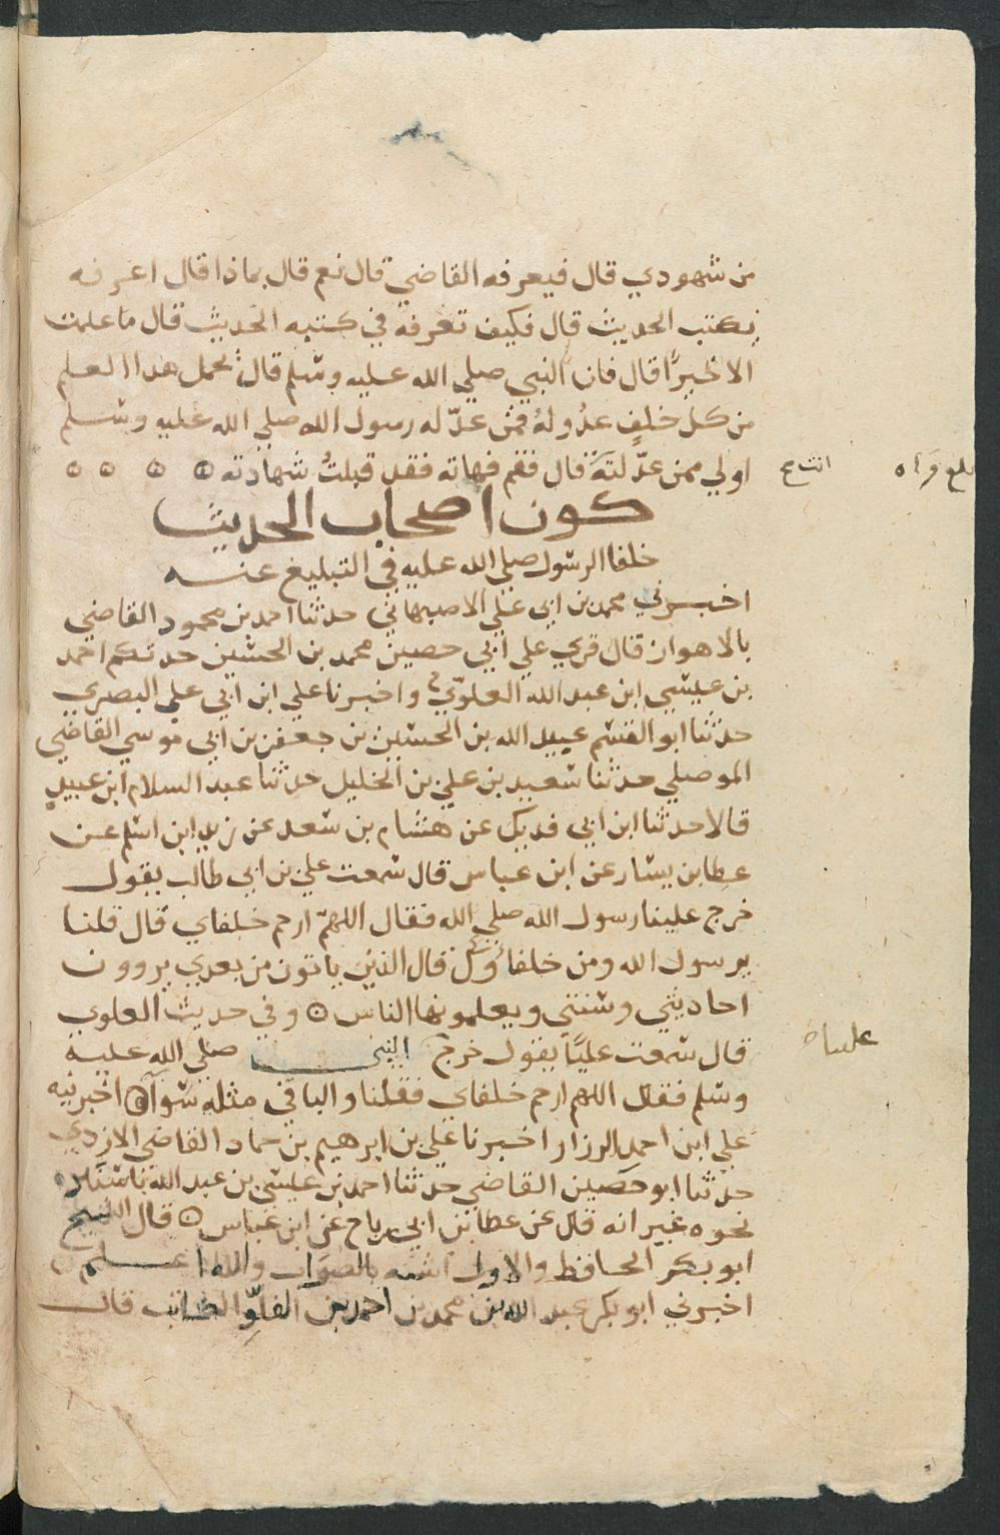 من شهودي قال فيعرفه القاضي قال نعم قال بماذا قال اعرفه
بكتب الحديث قال فكيف تعرفه في كتبه الحديث قال ما علمت
الا خيرًا قال فان النبي صلي الله عليه وسلم قال يحمل هذا العلم
من كل خلفٍ عدُولهُ فمن عدّله رسول الله صلي الله عليه وسلم
اولي ممن عدّلتَه قال فقم فهاته فقد قبلتُ شهادته
بلغ قراه
كون اصحاب الحديث
خلفا الرسول صلي الله عليه في التبليغ عنه
اخبرني محمد بن ابي علي الاصبهاني حدثنا احمد بن محمود القاضي
بالاهواز قال قري علي ابي حصين محمد بن الحسين حدثكم احمد
بن عيسي ابن عبد الله العلوّي واخبرنا علي ابن ابي علي البصري
حدثنا ابو القسم عبيد الله بن الحسين بن جعفر بن ابي موسي القاضي
الموصلي حدثنا سعيد بن علي بن الخليل حدثنا عبد السلام ابن عبيدٍ
قالا حدثنا ابن ابي فديك عن هشام بن سعد عن زيد ابن اسلم عن
عطا بن يسار عن ابن عباس قال سمعت علي بن ابي طالب يقول
خرج علينا رسول الله صلي الله فقال اللهمّ ارحم خلفاي قال قلنا
يرسول الله ومن خلفاؤك قال الذين ياتون من بعدي يروون
احاديثي وسنتي ويعلمونها الناس وفي حديث العلوي
قال سمعت عليًّا يقول خرج النبي صلي الله عليه
علينا
وسلم فقال اللهم ارحم خلفاي فقلنا والباقي مثله سوآ اخبرنيه
علي ابن احمد الرزاز اخبرنا علي بن ابرهيم بن حماد القاضي الازدي
حدثنا ابو حصين القاضي حدثنا احمد بن عيسي بن عبد الله باسناده
نحوه غير انه قال عن عطا بن ابي رباح عن ابن عباس قال الشيخ
ابو بكر الحافظ والاول اشبه بالصواب والله اعلم
اخبرني ابو بكر عبد الله بن محمد بن احمد بن الفلوّ الكاتب قال